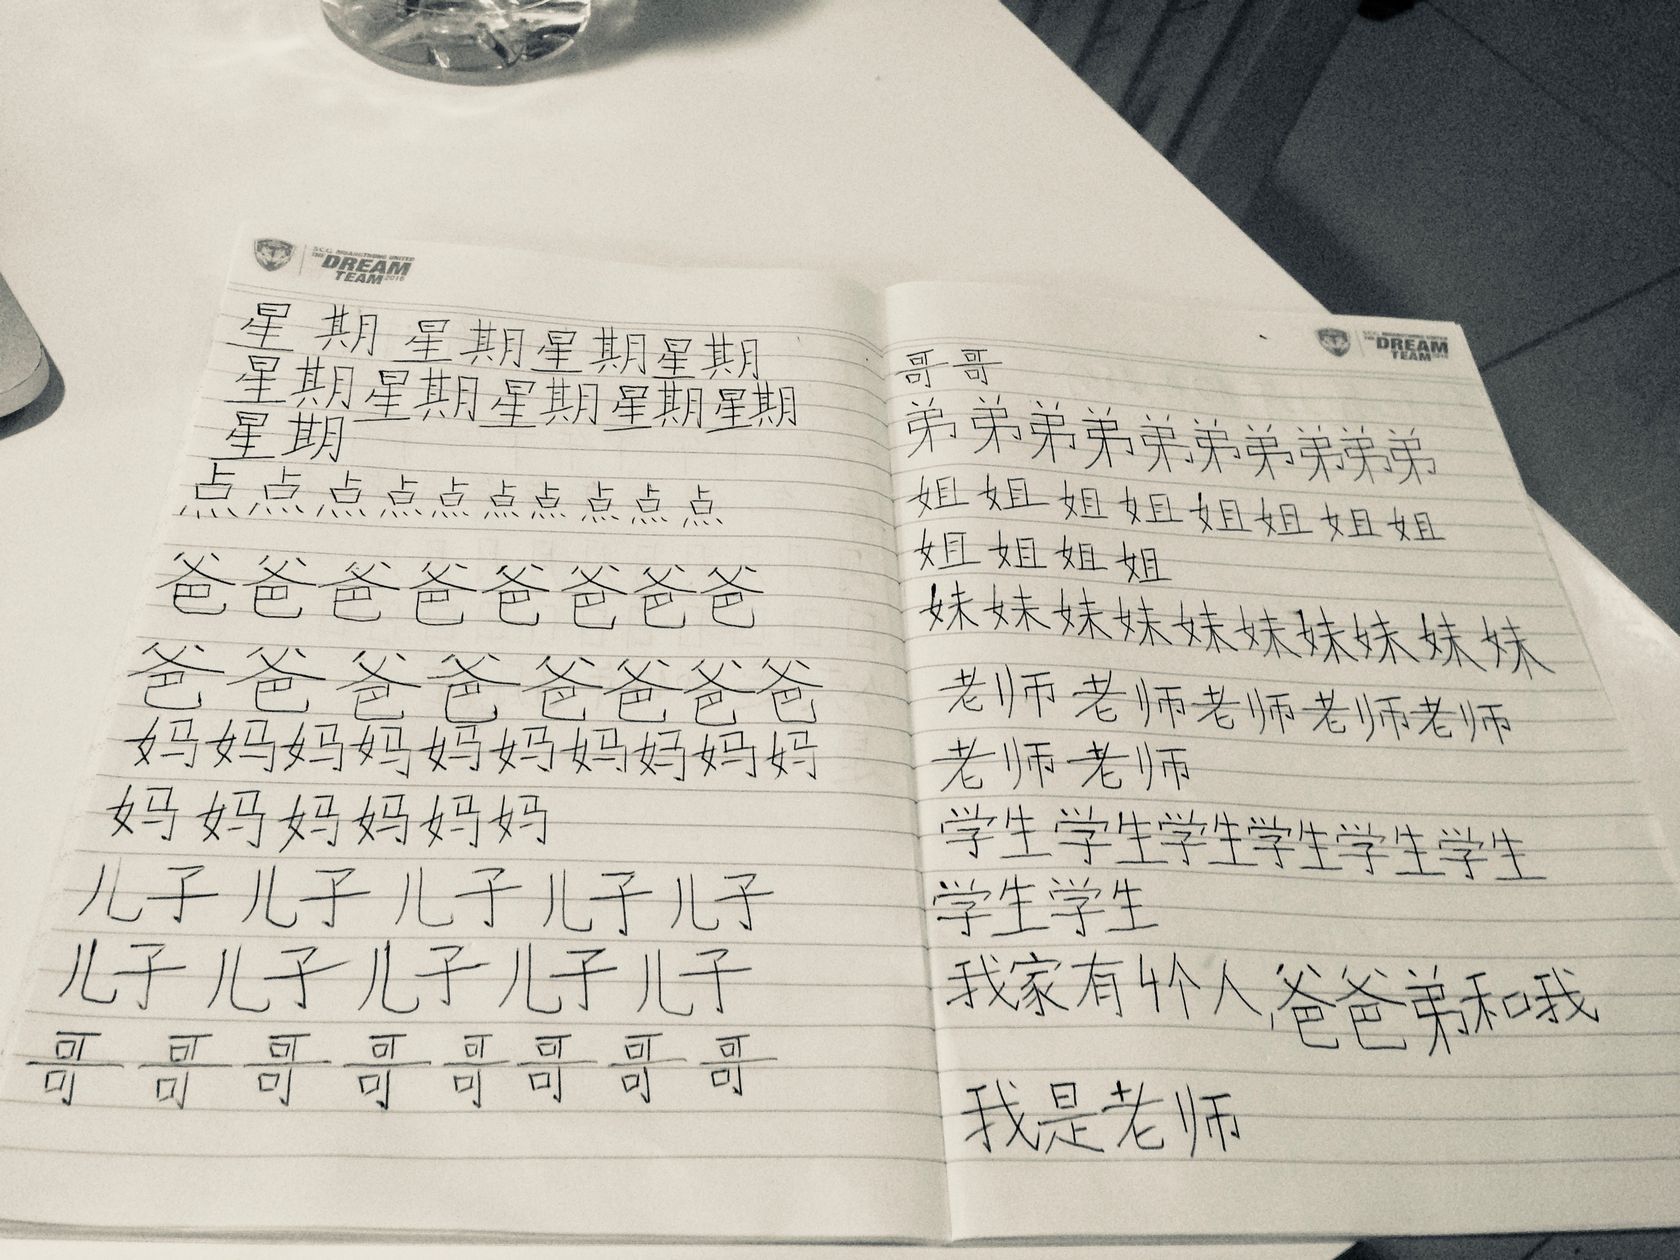 S.C.G. MUANGTHONG UNITED
THE DREAM
TEAM 2016
星期星期星期星期
星期星期星期星期星期
星期
点点点点点点点点点点
爸爸爸爸爸爸爸爸
爸爸爸爸爸爸爸爸
妈妈妈妈妈妈妈妈妈妈
妈妈妈妈妈妈
儿子儿子儿子儿子儿子
儿子儿子儿子儿子儿子
哥哥哥哥哥哥哥哥
S.C.G. MUANGTHONG UNITED
THE DREAM
TEAM 2016
哥哥
弟弟弟弟弟弟弟弟弟弟
姐姐姐姐姐姐姐姐
姐姐姐姐
妹妹妹妹妹妹妹妹妹妹
老师老师老师老师老师
老师老师
学生学生学生学生学生学生
学生学生
我家有4个人,爸爸弟和我
我是老师